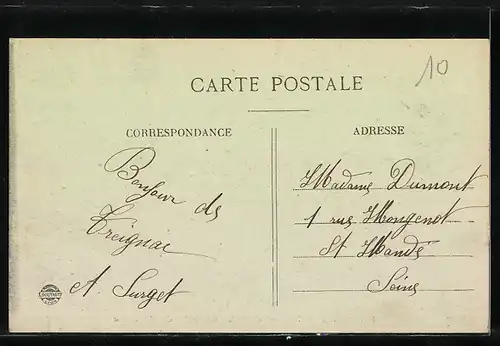 10
CARTE POSTALE
CORRESPONDANCE
Bonjour de
Treignac
A. Surget
ADRESSE
Madame Dumont
1 rue Mongenot
St Mandé
Seine